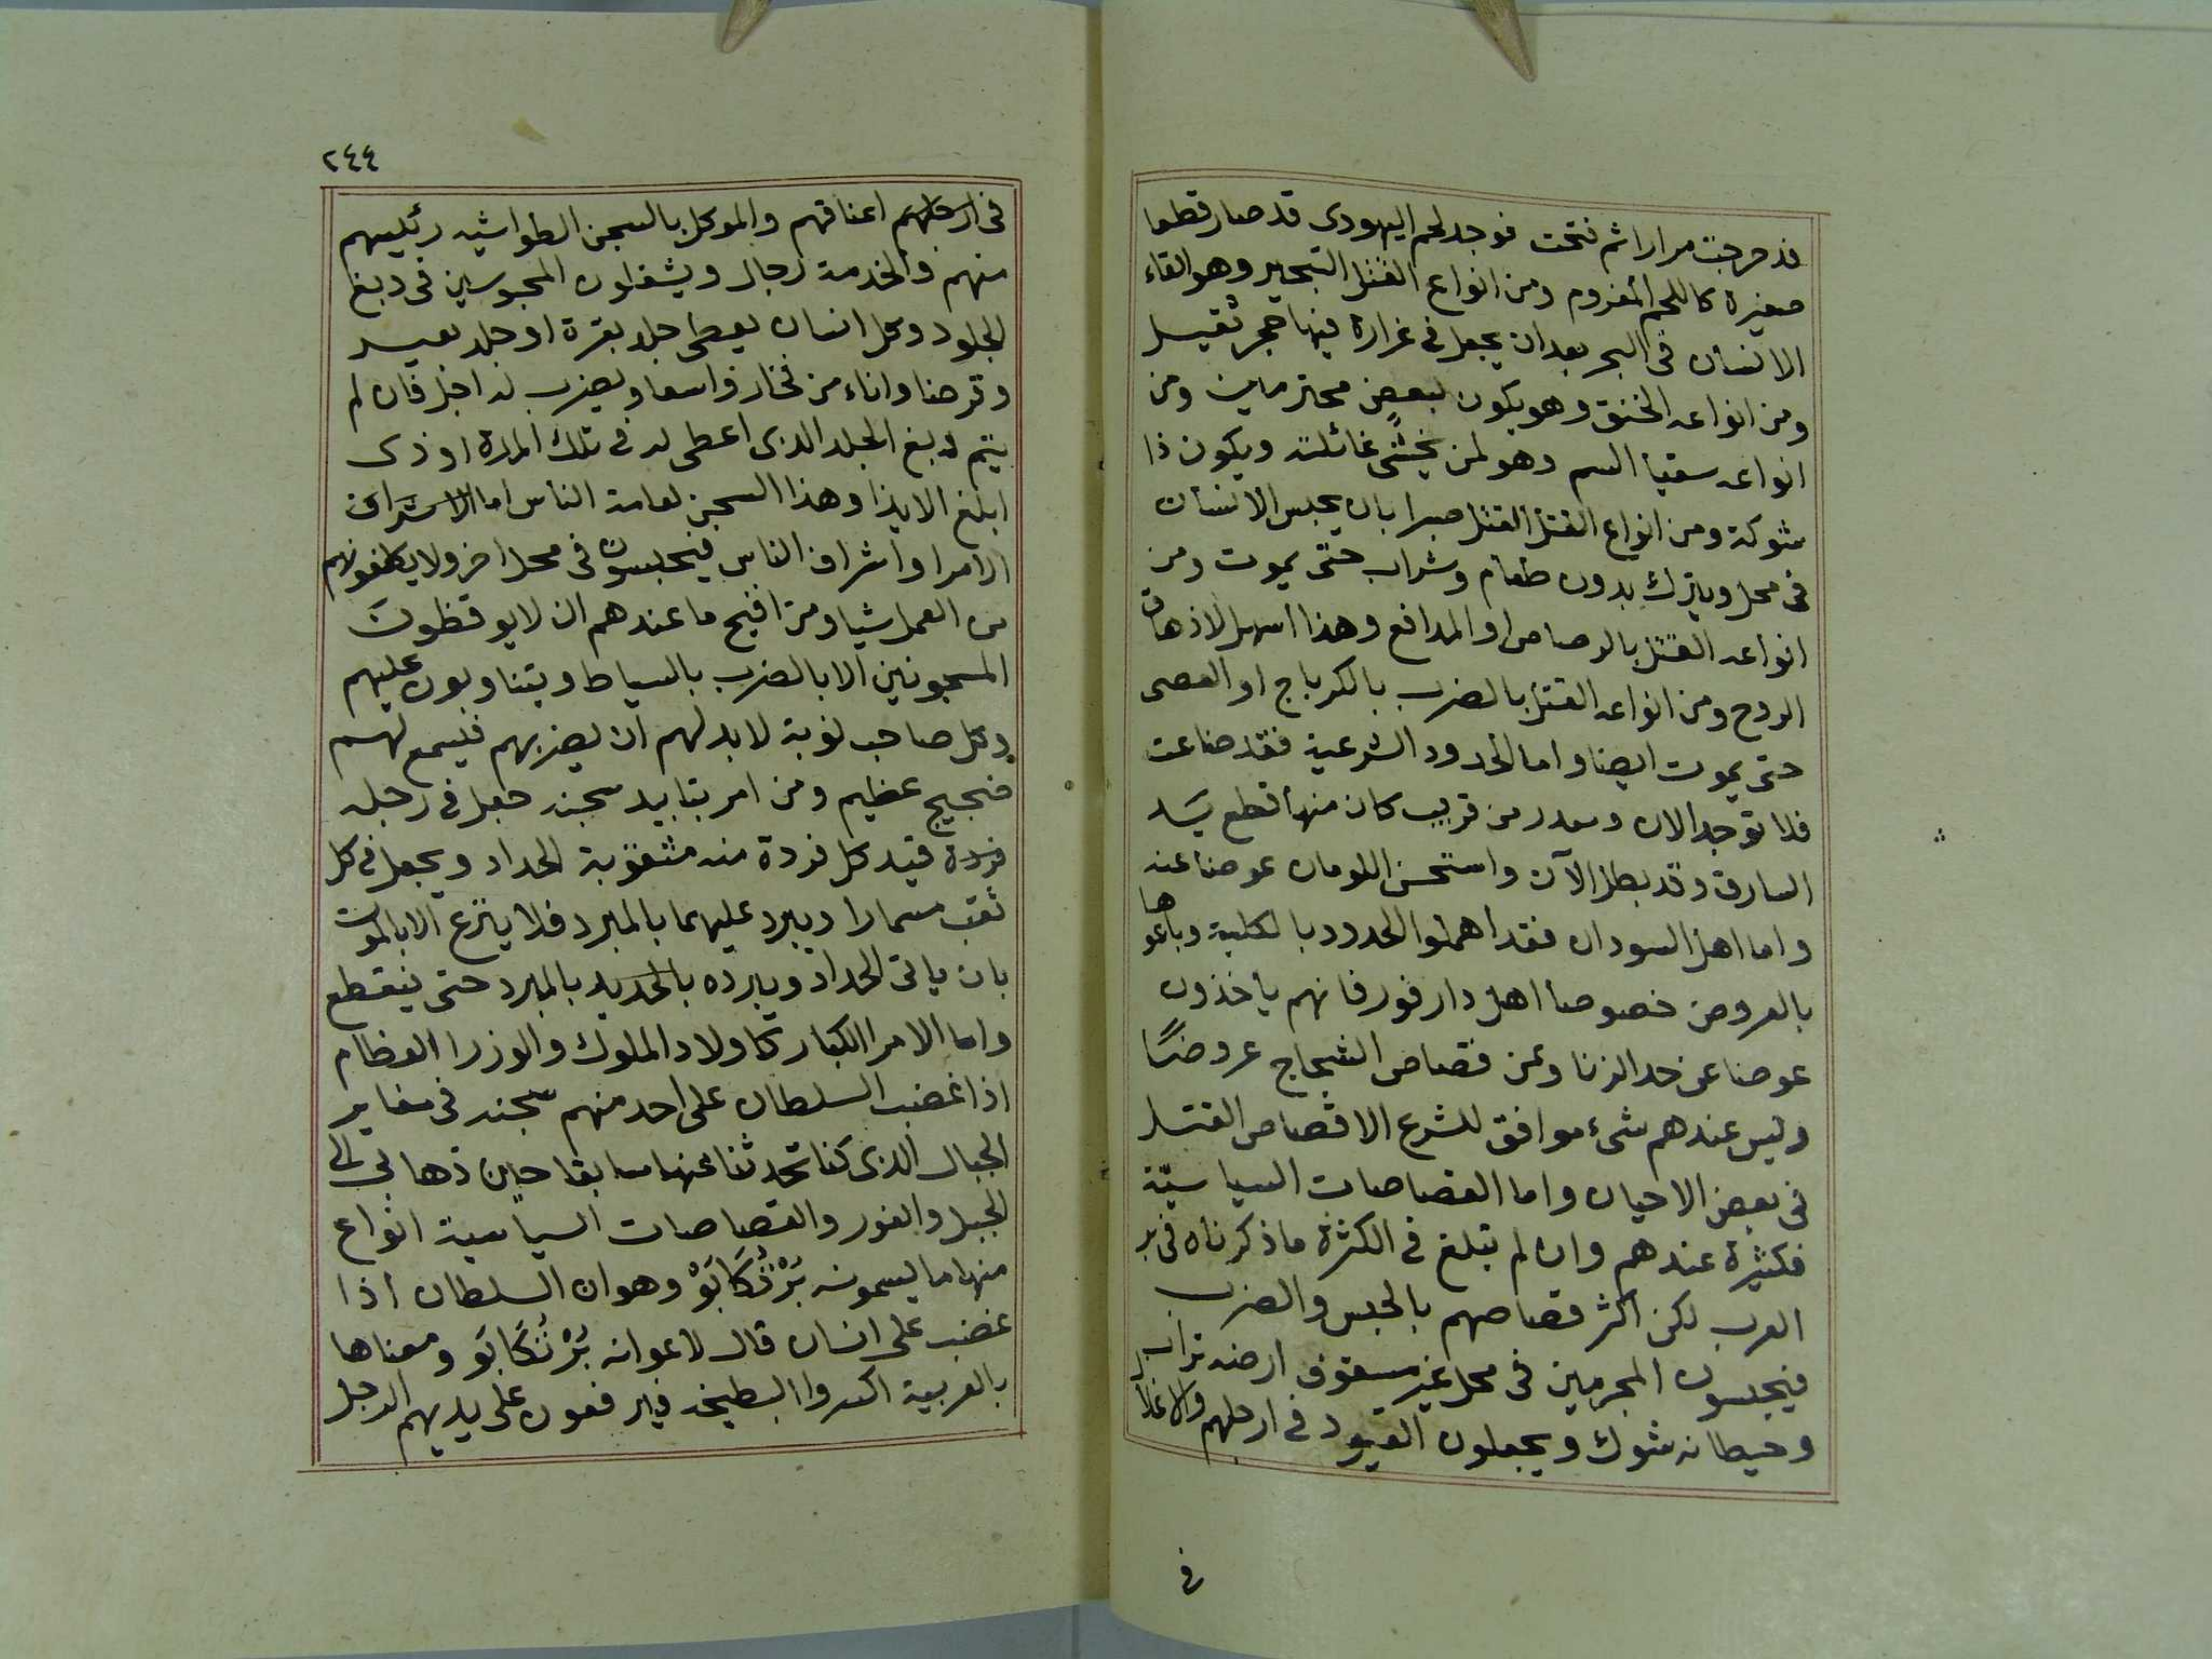 قد دحرجت مرارا ثم فتحت فوجد لحم اليهودى قد صار قطعا
صغيرة كاللحم المفروم ومن انواع القتل التبحير وهو القاء
الانسان فى البحر بعد ان يجعل فى غرارة فيها حجر ثقيل
ومن انواعه الخنق وهو يكون لبعض محترمين ومن
انواعه سقيا السم وهو لمن يخشى غائلته ويكون ذا
شوكة ومن انواع القتل القتل صبرا بان يحبس الانسان
فى محل ويترك بدون طعام وشراب حتى يموت ومن
انواعه القتل بالرصاص او المدافع وهذا اسهل لاذهاق
الروح ومن انواعه القتل بالضرب بالكرباج او العصى
حتى يموت ايضا واما الحدود الشرعية فقد ضاعت
فلا توجد الان ومدر من قريب كان منها قطع يد
السارق وقد بطل الآن واستحسن اللومان عوضا عنه
واما اهل السودان فقد اهملوا الحدود بالكلية وباعوها
بالعروض خصوصا اهل دارفور فانهم ياخذون
عوضا عن حد الزنا وعن قصاص الشجاج عروضًا
وليس عندهم شىء موافق للشرع الا قصاص القتل
فى بعض الاحيان واما القصاصات السياسيّة
فكثيرة عندهم وان لم تبلغ فى الكثرة ما ذكرناه فى بر
العرب لكن اكثر قصاصهم بالحبس والضرب
فيحبسون المجرمين فى محل غير مسقوف ارضه تراب
وحيطانه شوك ويجعلون القيود فى ارجلهم والاغلال
فى
٢٤٤
فى ارجلهم اعناقهم والموكل بالسجن الطواشيه رئيسهم
منهم والخدمة رجال ويشغلون المحبوسين فى دبغ
الجلود وكل انسان يعطى جلد بقرة او جلد بعير
وقرضا واناء من فخار واسعا ويضرب له اجل فان لم
يتم دبغ الجلد الذى اعطى له فى تلك المدة اوذى
ابلغ الايذا وهذا السجن لعامة الناس اما الاشراف
الامرا واشراف الناس فيحبسون فى محل اخر ولا يكلفونهم
من العمل شيا ومن اقبح ما عندهم ان لا يوقظون
المسجونين الا بالضرب بالسياط ويتناوبون عليهم
وكل صاحب نوبة لا بد لهم ان يضربهم فيسمع لهم
ضجيج عظيم ومن امر بتابيد سجنه جعل فى رجله
فردة قيد كل فردة منه مثقوبة الحداد ويجعل فى كل
ثقب مسمارا ويبرد عليهما بالمبرد فلا ينزع الا بالموت
بان ياتى الحداد ويبرده بالحديد بالمبرد حتى ينقطع
واما الامرا الكبار كاولاد الملوك والوزرا العظام
اذا غضب السلطان على احد منهم سجنه فى مغاير
الجبال الذى كنا تحدثنا عنها سابقا حين ذهابى الى
الجبل والفور والقصاصات السياسية انواع
منها ما يسمونه بَرْنُكَابَوْ وهو ان السلطان اذا
غضب على انسان قال لاعوانه بَرْنُكَابَو ومعناها
بالعربية اكسروا البطيخه فيرفعون على يديهم الرجل